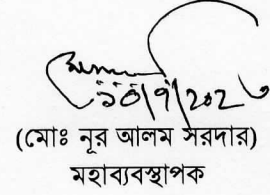 (মোঃ নূর আলম সরদার)
মহাব্যবস্থাপক